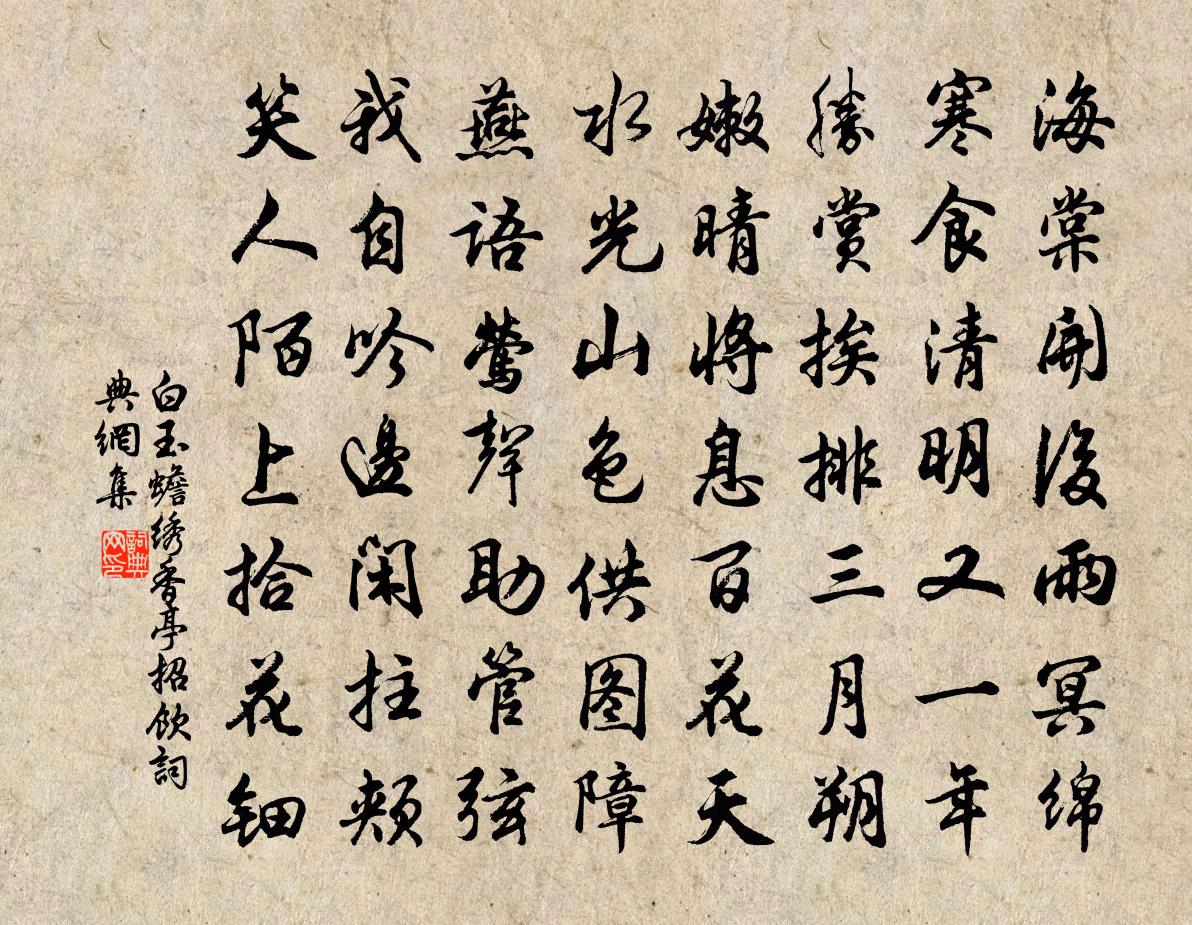 海棠開後雨冥綿
寒食清明又一年
勝賞挨排三月朔
嫩晴将息百花天
水光山色供图障
燕語鶯聲助管弦
我自吟邊闲拄頰
笑人陌上拾花钿
白玉蟾绣香亭招飲詞
典網集
詞典
网印